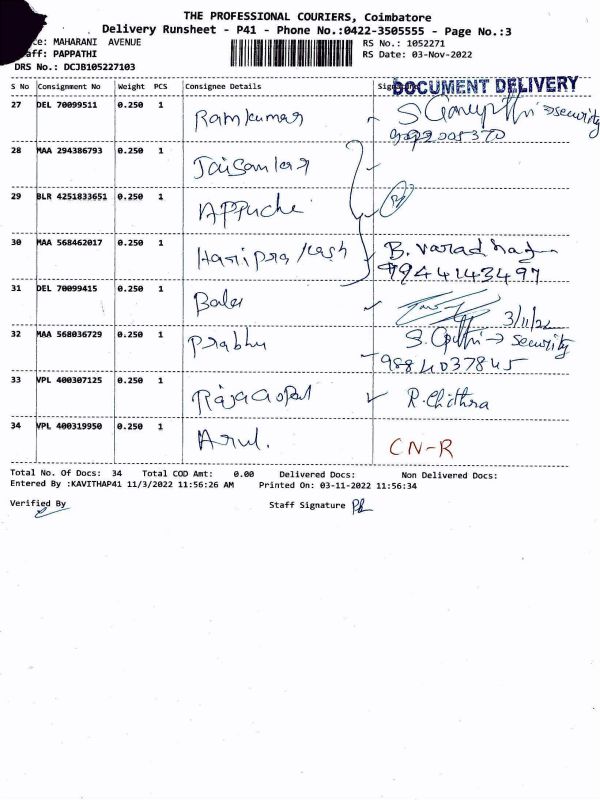 THE PROFESSIONAL COURIERS, Coimbatore
Delivery Runsheet - P41 - Phone No.:0422-3505555 - Page No.:3
ce: MAHARANI AVENUE
RS No.: 1052271
aff: PAPPATHI
RS Date: 03-Nov-2022
DRS No.: DCJB105227103
S No Consignment No Weight PCS Consignee Details Sig
DOCUMENT DELIVERY
27 DEL 70099511 0.250 1 Ramkumar
→ security
28 MAA 294386793 0.250 1
29 BLR 4251833651 0.250 1
30 MAA 568462017 0.250 1 B.
9944143497
31 DEL 70099415 0.250 1
3/11/22
32 MAA 568036729 0.250 1 Prabhu → security
9884037845
33 VPL 400307125 0.250 1 R. Chithra
34 VPL 400319950 0.250 1 Arul. CN-R
Total No. Of Docs: 34 Total COD Amt: 0.00 Delivered Docs: Non Delivered Docs:
Entered By :KAVITHAP41 11/3/2022 11:56:26 AM Printed On: 03-11-2022 11:56:34
Verified By Staff Signature